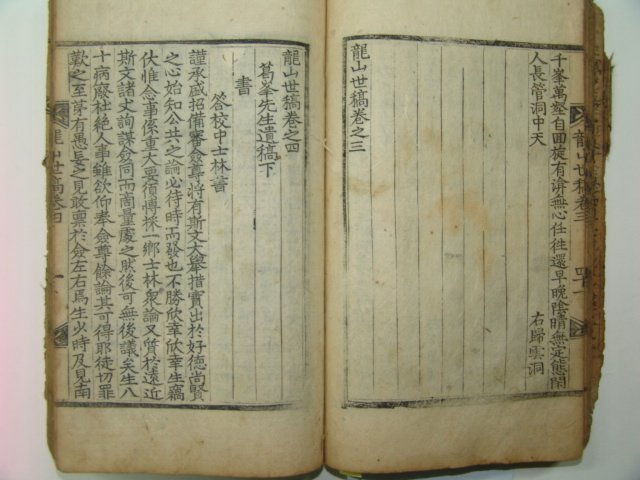 千峯萬壑自回旋有淸無心任往還早晩陰晴無定態閒
人長管洞中天
右歸雲洞
龍山世稿卷之三
龍山世稿卷三
龍山世稿卷之四
葛峯先生遺稿下
書
答校中士林書
謹承盛招備審僉尊將有斯文大擧措實出於好德尙賢
之心始知公共之論必待時而發也不勝欣幸欣幸生竊
伏惟念事係重大要須博採一鄕士林衆論又質於遠近
斯文諸丈詢謀僉同而周量處之然後可無後議矣生八
十病廢杜絶人事雖欲仰奉僉尊餘論其可得耶徒切罪
歎之至芽有愚長之見敢稟於僉左右焉生少時及見南
龍山世稿卷四
一